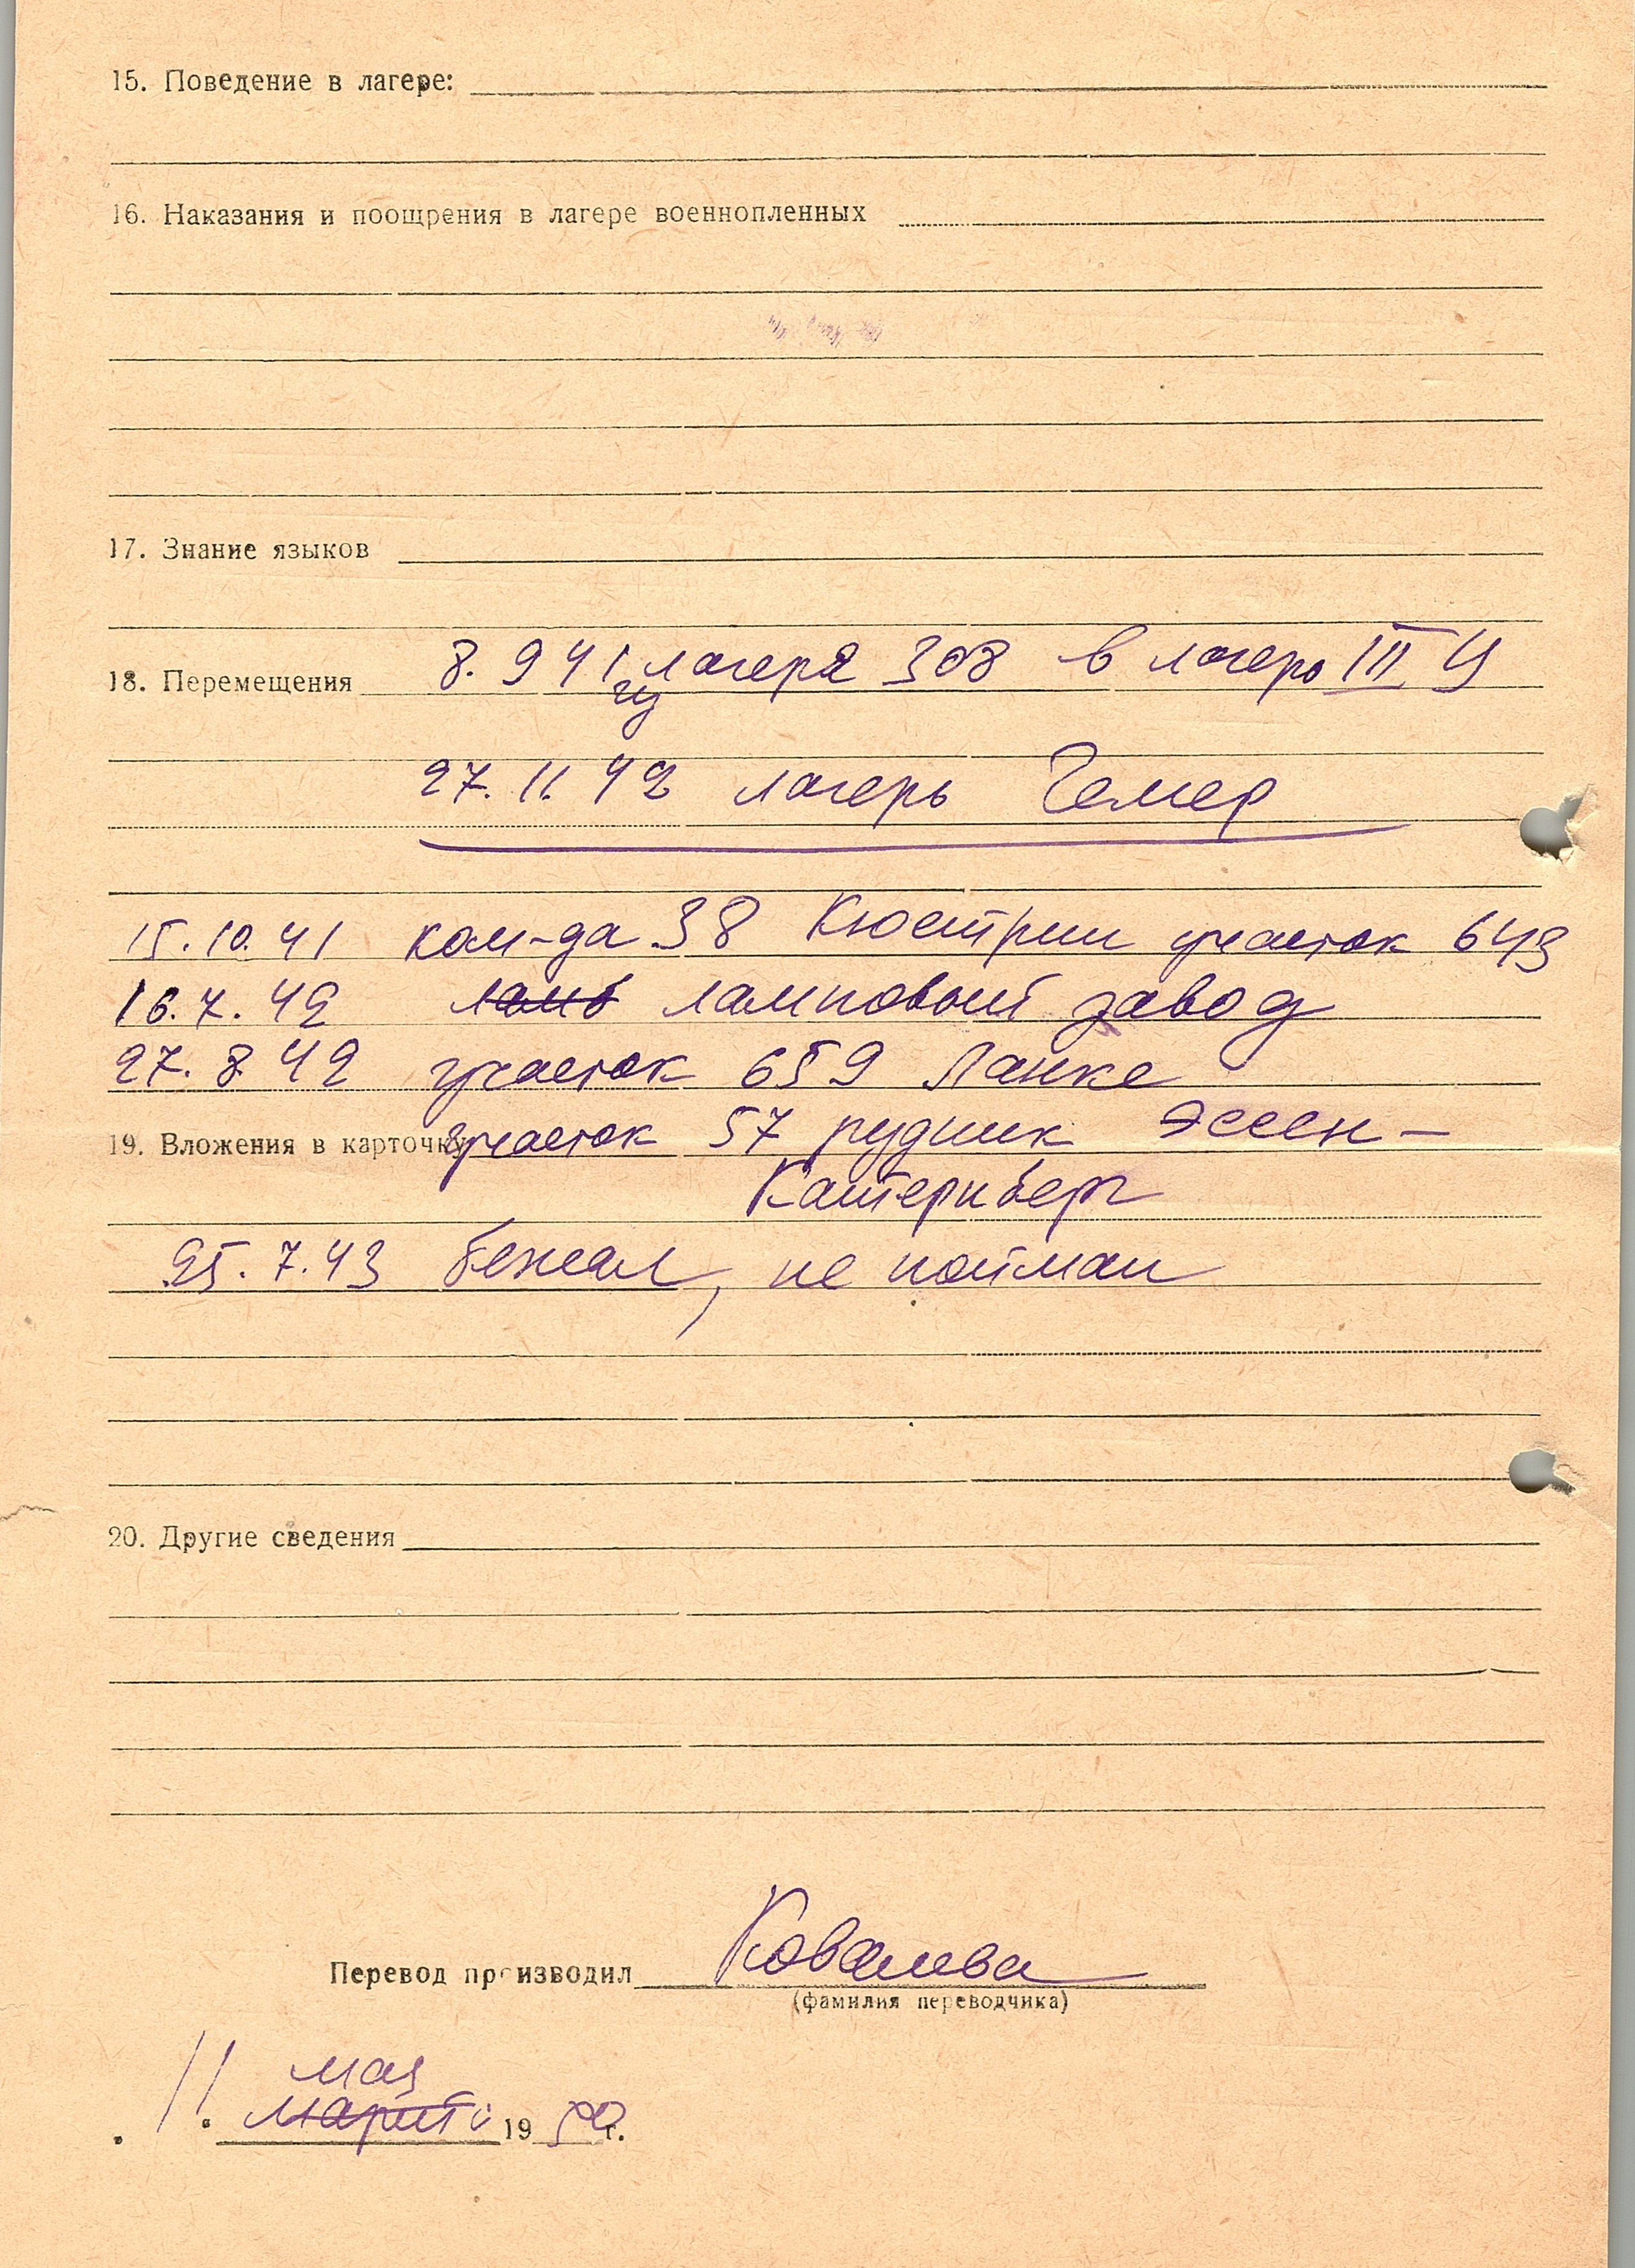 15. Поведение в лагере:
16. Наказания и поощрения в лагере военнопленных
17. Знание языков
18. Перемещения 8. 9 41 из лагеря 308 в лагерь III Ц
27. 11. 42 лагерь Гемер
15. 10. 41 ком-да 38 Кюстрин участок 643
16. 7. 42 ламповый завод
27. 8 42 участок 659 Ланке
19. Вложения в карточку участок 57 рудник Эссен-
Катернберг
25. 7. 43 бежал, не пойман
20. Другие сведения
Перевод производил Ковалева
(фамилия переводчика)
11. мая
марта 1950 г.